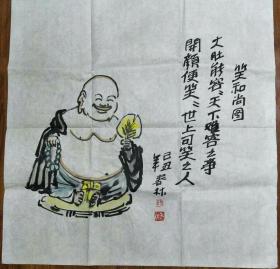 笑和尚图
大肚能容容天下难容之事
開顔便笑笑世上可笑之人
己丑
春林